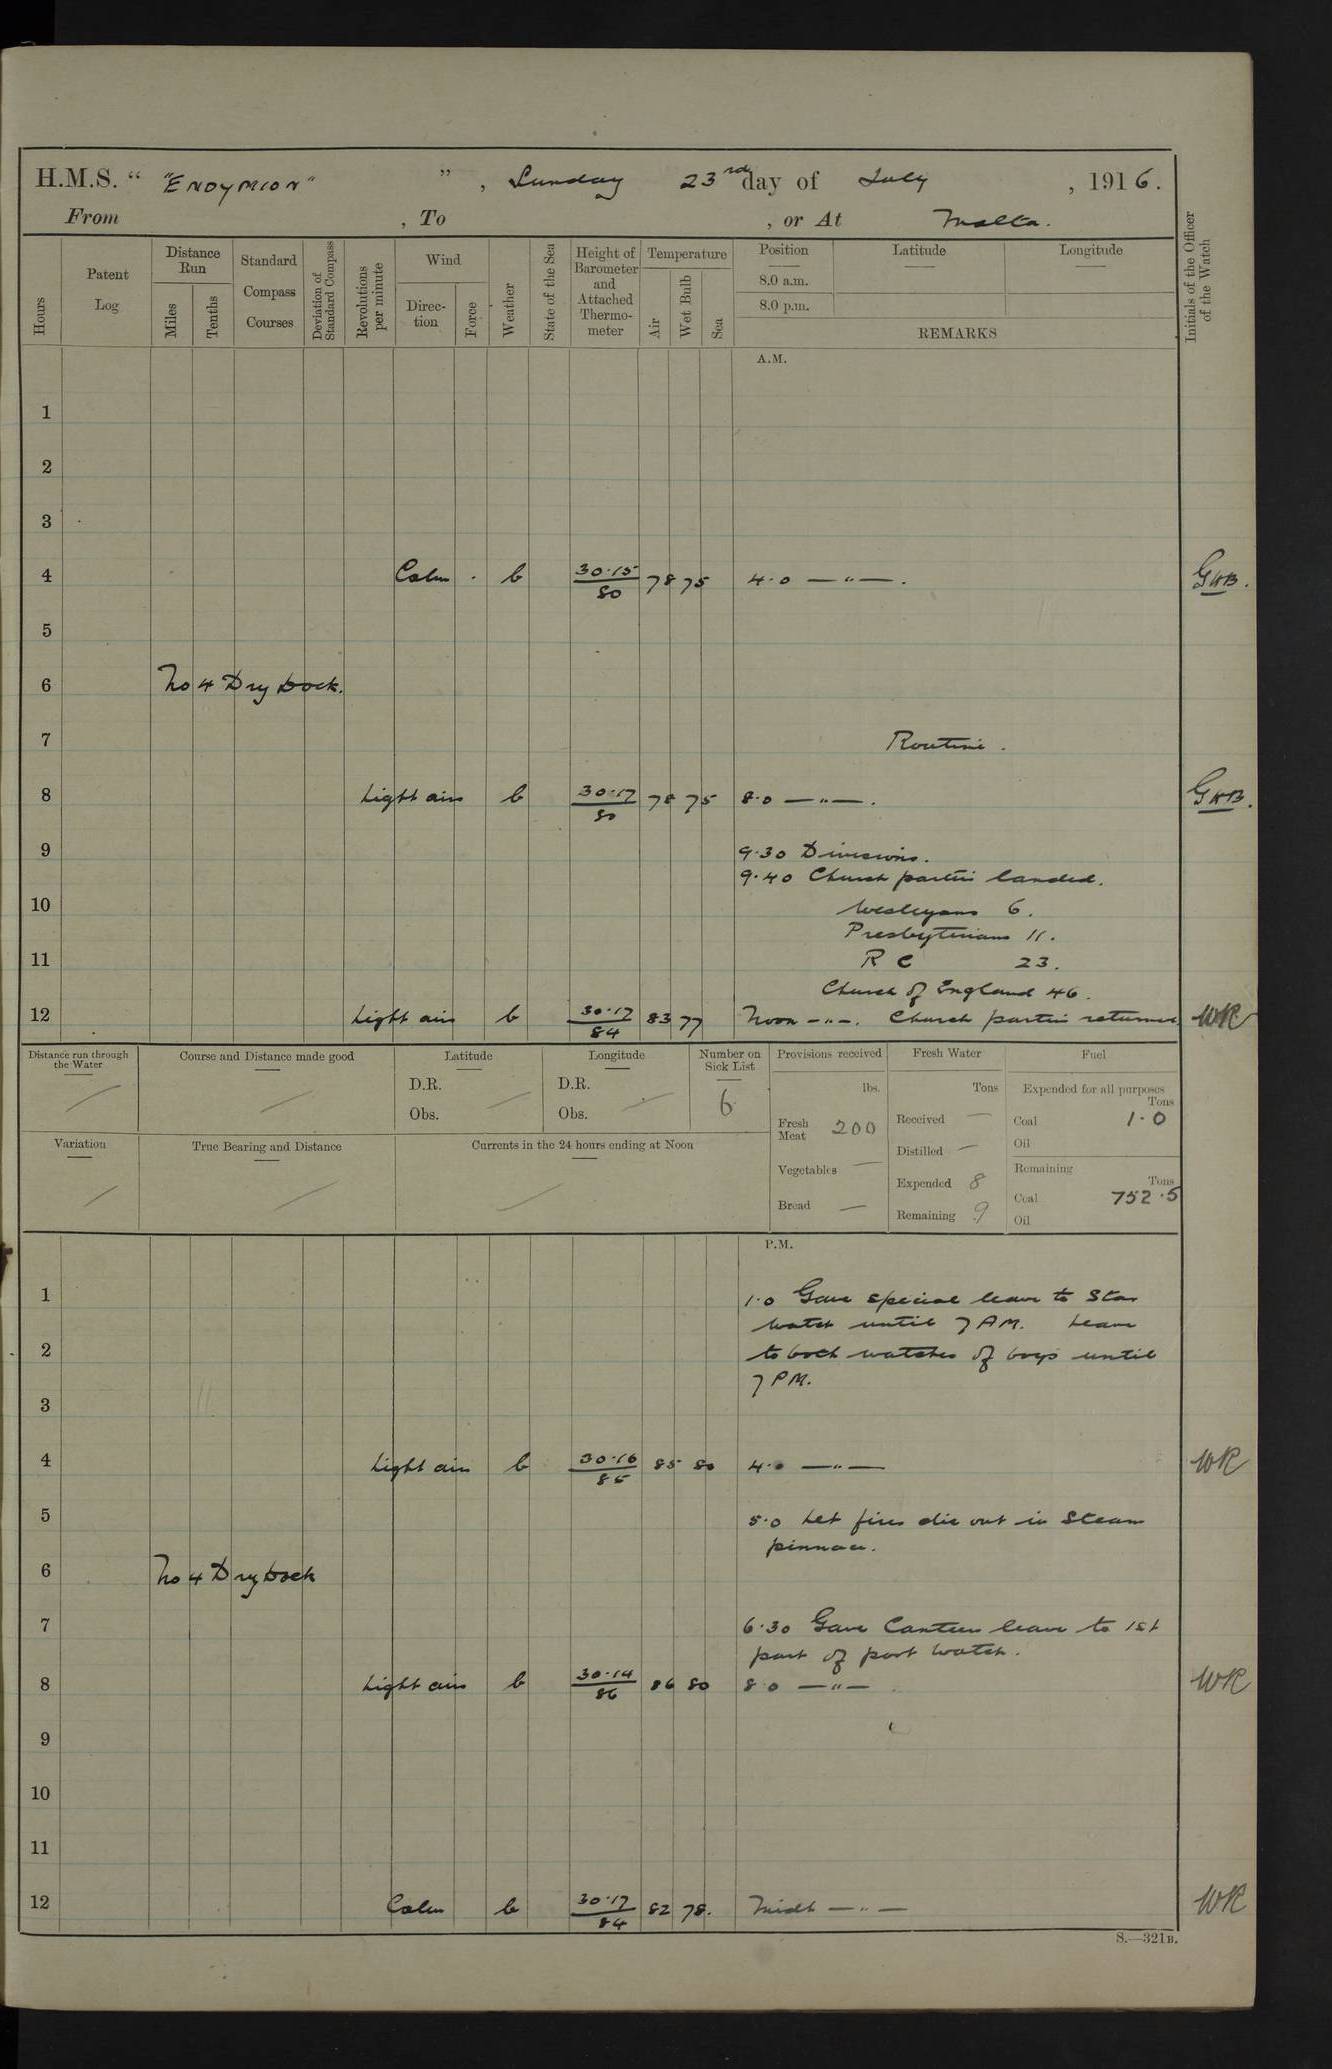 H.M.S. “ "ENDYMION" ” , Sunday 23rd day of July , 1916.
From , To , or At Malta.
Hours
Patent Log
Distance Run
Miles
Tenths
Standard Compass Courses
Deviation of Standard Compass
Revolutions per minute
Wind
Direc-tion
Force
Weather
State of the Sea
Height of Barometer and Attached Thermo-meter
Temperature
Air
Wet Bulb
Sea
Position
8.0 a.m.
8.0 p.m.
Latitude
Longitude
REMARKS
Initials of the Officer of the Watch
A.M.
1
2
3
4 Calm . b 30.15/80 78 75 4.0 — " — . GHB.
5
6 No 4 Dry Dock.
7 Routine .
8 Light airs b 30.17/80 78 75 8.0 — " — . GHB.
9 9.30 Divisions.
9.40 Church parties landed.
10 Wesleyans 6.
Presbyterians 11.
11 R C 23.
Church of England 46.
12 Light airs b 30.17/84 83 77 Noon — " —. Church parties returned WR
Distance run through the Water
Course and Distance made good
Latitude
D.R.
Obs.
Longitude
D.R.
Obs.
Number on Sick List
6
Provisions received
lbs.
Fresh Meat 200
Vegetables —
Bread —
Fresh Water
Tons
Received —
Distilled —
Expended 8
Remaining 9
Fuel
Expended for all purposes
Tons
Coal 1.0
Oil
Remaining
Tons
Coal 752.5
Oil
Variation
True Bearing and Distance
Currents in the 24 hours ending at Noon
P.M.
1 1.0 Gave special leave to Star
watch until 7 AM. Leave
2 to both watches of boys until
7 PM.
3
4 Light airs b 30.16/85 85 80 4.0 — " — WR
5 5.0 Let fires die out in Steam
pinnace.
6 No 4 Dry Dock
7 6.30 Gave Canteen leave to 1st
part of port watch.
8 Light airs b 30.14/86 86 80 8.0 — " — WR
9
10
11
12 Calm b 30.17/84 82 78. Midt — " — WR
S.—321B.